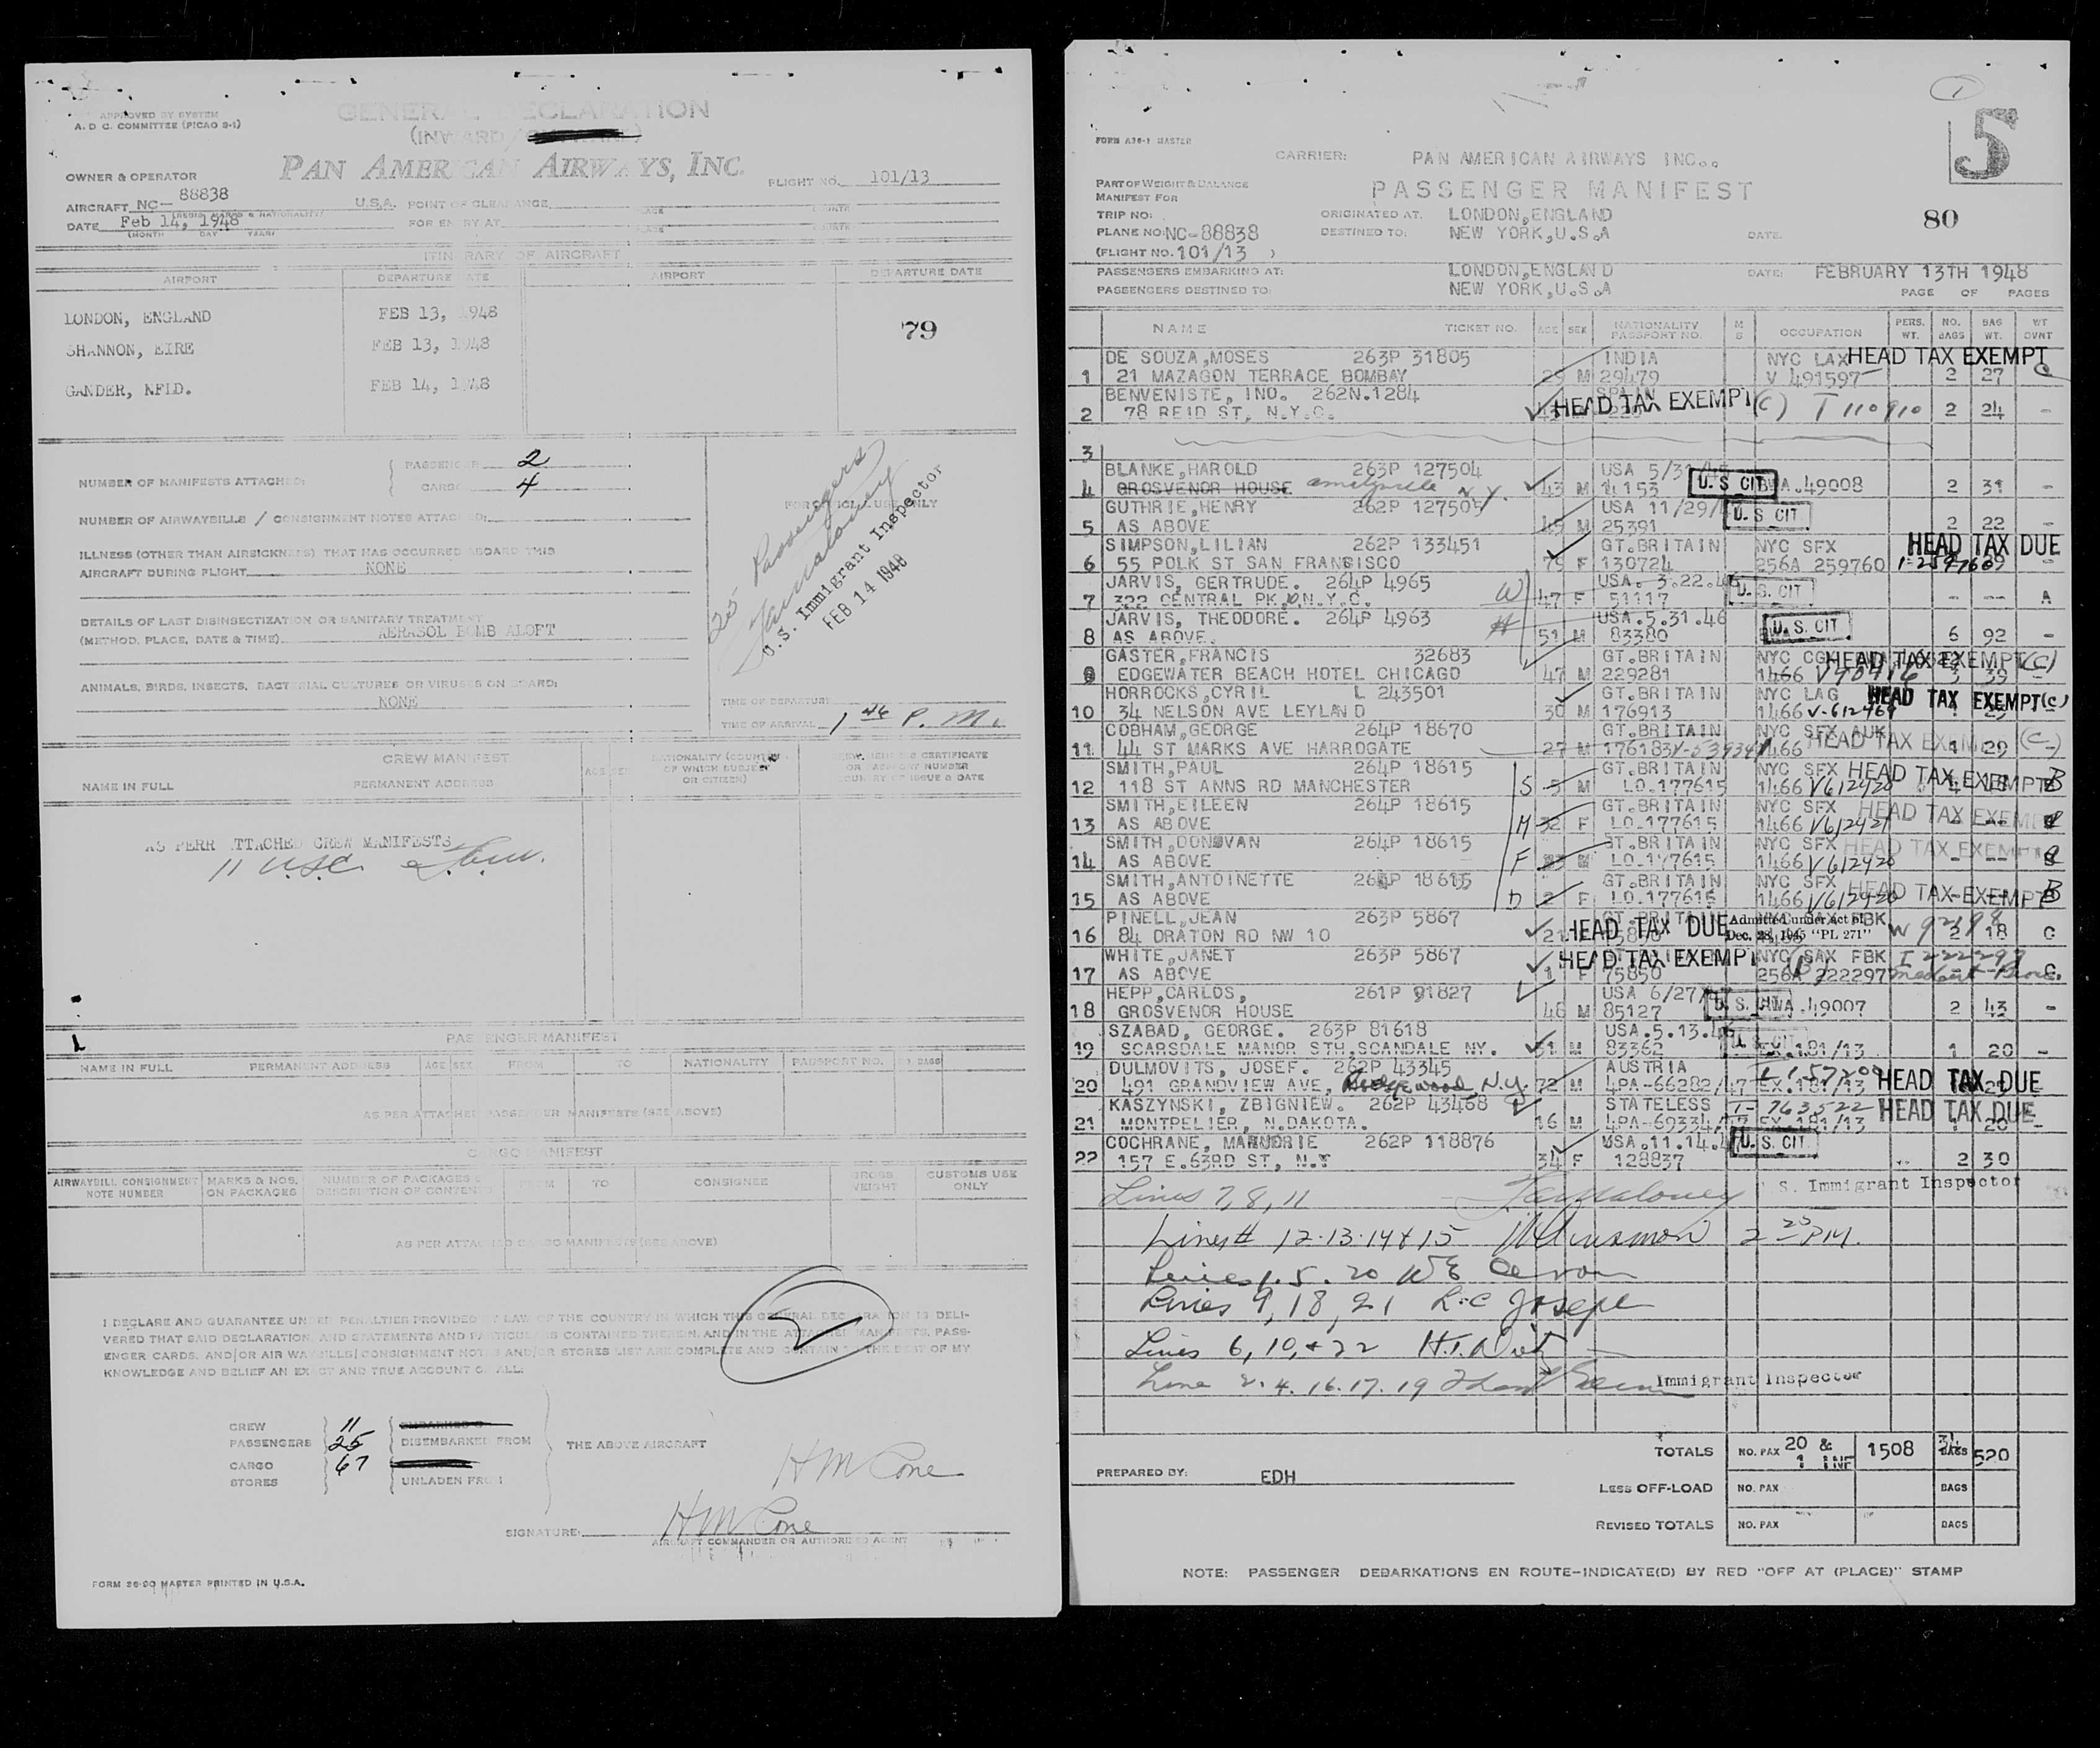 APPROVED BY SYSTEM
A. D C. COMMITTEE (PICAO 2-1)
GENERAL DECLARATION
(INWARD/
PAN AMERICAN AIRWAYS, INC.
OWNER & OPERATOR
FLIGHT NO. 101/13
AIRCRAFT NC- 88838 U.S.A. POINT OF CLEARANCE PLACE COUNTRY
DATE Feb 14, 1948 FOR ENTRY AT PLACE COUNTRY
(MONTH DAY YEAR)
ITINERARY OF AIRCRAFT
AIRPORT DEPARTURE DATE AIRPORT DEPARTURE DATE
LONDON, ENGLAND FEB 13, 1948
79
SHANNON, EIRE FEB 13, 1948
GANDER, NFLD. FEB 14, 1948
NUMBER OF MANIFESTS ATTACHED: PASSENGER 2
CARGO 4
NUMBER OF AIRWAYBILLS / CONSIGNMENT NOTES ATTACHED:
FOR OFFICIAL USE ONLY
25 Passengers
U.S. Immigrant Inspector
FEB 14 1948
ILLNESS (OTHER THAN AIRSICKNESS) THAT HAS OCCURRED ABOARD THIS
AIRCRAFT DURING FLIGHT NONE
DETAILS OF LAST DISINSECTIZATION OR SANITARY TREATMENT
(METHOD, PLACE, DATE & TIME) AERASOL BOMB ALOFT
ANIMALS, BIRDS, INSECTS, BACTERIAL CULTURES OR VIRUSES ON BOARD:
NONE
TIME OF DEPARTURE
TIME OF ARRIVAL 1 46 P. M.
CREW MANIFEST
NAME IN FULL PERMANENT ADDRESS AGE SEX NATIONALITY (COUNTRY OF WHICH SUBJECT OR CITIZEN) CREW MEMBERS CERTIFICATE OR PASSPORT NUMBER COUNTRY OF ISSUE & DATE
AS PERR ATTACHED CREW MANIFESTS
11 USC
PASSENGER MANIFEST
NAME IN FULL PERMANENT ADDRESS AGE SEX FROM TO NATIONALITY PASSPORT NO. NO. BAGS
AS PER ATTACHED PASSENGER MANIFESTS (SEE ABOVE)
CARGO MANIFEST
AIRWAYBILL CONSIGNMENT NOTE NUMBER MARKS & NOS. ON PACKAGES NUMBER OF PACKAGES & DESCRIPTION OF CONTENTS FROM TO CONSIGNEE GROSS WEIGHT CUSTOMS USE ONLY
AS PER ATTACHED CARGO MANIFESTS (SEE ABOVE)
2
I DECLARE AND GUARANTEE UNDER PENALTIES PROVIDED BY LAW OF THE COUNTRY IN WHICH THIS GENERAL DECLARATION IS DELI-
VERED THAT SAID DECLARATION, AND STATEMENTS AND PARTICULARS CONTAINED THEREIN, AND IN THE ATTACHED MANIFESTS, PASS-
ENGER CARDS, AND/OR AIR WAYBILLS/CONSIGNMENT NOTES AND/OR STORES LIST ARE COMPLETE AND CONTAIN TO THE BEST OF MY
KNOWLEDGE AND BELIEF AN EXACT AND TRUE ACCOUNT OF ALL.
CREW 11
PASSENGERS 25 DISEMBARKED FROM THE ABOVE AIRCRAFT
CARGO 67
STORES UNLADEN FROM
H M Cone
SIGNATURE: H M Cone
AIRCRAFT COMMANDER OR AUTHORIZED AGENT
FORM 36-90 MASTER PRINTED IN U.S.A.
1
5
FORM A36-1 MASTER
CARRIER: PAN AMERICAN AIRWAYS INC..
PART OF WEIGHT & BALANCE
PASSENGER MANIFEST
MANIFEST FOR
TRIP NO: ORIGINATED AT. LONDON,ENGLAND
80
PLANE NO: NC-88838 DESTINED TO: NEW YORK,U.S.A DATE.
(FLIGHT NO. 101/13 )
PASSENGERS EMBARKING AT: LONDON,ENGLAND DATE: FEBRUARY 13TH 1948
PASSENGERS DESTINED TO: NEW YORK,U.S.A PAGE OF PAGES
NAME TICKET NO. AGE SEX NATIONALITY PASSPORT NO. OCCUPATION PERS. WT. NO. BAGS BAG WT. WT OVNT
DE SOUZA,MOSES 263P 31805 INDIA NYC LAX HEAD TAX EXEMPT
1 21 MAZAGON TERRACE BOMBAY 29 M 29479 V 491597 2 27
BENVENISTE, INO. 262N.1284 SPAIN
2 78 REID ST, N.Y.C. HEAD TAX EXEMPT (C) T 110910 2 24 -
3
BLANKE,HAROLD 263P 127504 USA 5/31/
4 GROSVENOR HOUSE N.Y. 43 M 14153 U. S CIT .49008 2 31 -
GUTHRIE,HENRY 262P 127505 USA 11/29/
5 AS ABOVE 45 M 25391 U. S CIT 2 22 -
SIMPSON,LILIAN 262P 133451 GT.BRITAIN NYC SFX HEAD TAX DUE
6 55 POLK ST SAN FRANSISCO 79 F 130724 256A 259760
JARVIS, GERTRUDE. 264P 4965 USA. 3.22.46
7 322 CENTRAL PK,W,N.Y.C. W 47 F 51117 U. S. CIT - -- A
JARVIS, THEODORE. 264P 4963 USA.5.31.46
8 AS ABOVE. H 51 M 83380 U. S. CIT 6 92 -
GASTER,FRANCIS 32683 GT.BRITAIN NYC HEAD TAX EXEMPT (C)
9 EDGEWATER BEACH HOTEL CHICAGO 47 M 229281 1466 3 39
HORROCKS,CYRIL L 243501 GT.BRITAIN NYC LAG HEAD TAX EXEMPT(c)
10 34 NELSON AVE LEYLAND 30 M 176913 1466 V-612469
COBHAM,GEORGE 264P 18670 GT.BRITAIN NYC SFX AUK HEAD TAX EXEMPT (C)
11 44 ST MARKS AVE HARROGATE 27 M 176183 1466 1 29 -
SMITH,PAUL 264P 18615 GT.BRITAIN NYC SFX HEAD TAX EXEMPT B
12 118 ST ANNS RD MANCHESTER S 5 M LO.177615 1466 V612420
SMITH,EILEEN 264P 18615 GT.BRITAIN NYC SFX HEAD TAX EXEMPT
13 AS ABOVE M 32 F LO.177615 1466 V612421
SMITH,DONOVAN 264P 18615 GT.BRITAIN NYC SFX HEAD TAX EXEMPT
14 AS ABOVE F M LO.177615 1466 V612420
SMITH,ANTOINETTE 264P 18615 GT.BRITAIN NYC SFX HEAD TAX EXEMPT B
15 AS ABOVE D 2 F LO.177615 1466 V612420
PINELL,JEAN 263P 5867 GT.BRITAIN FBK
16 84 DRATON RD NW 10 21 HEAD TAX DUE Admitted under Act of Dec. 28, 1945 "PL 271" 2 18 C
WHITE,JANET 263P 5867 HEAD TAX EXEMPT NYC SAX FBK I 222297
17 AS ABOVE 1 F 75850 256A 222297
HEPP,CARLOS, 261P 91827 USA 6/27/
18 GROSVENOR HOUSE 46 M 85127 U. S. CIT .49007 2 43 -
SZABAD, GEORGE. 263P 81618 USA.5.13.
19 SCARSDALE MANOR STH,SCANDALE NY. 31 M 83362 181/13 1 20 -
DULMOVITS, JOSEF. 262P 43345 AUSTRIA
20 491 GRANDVIEW AVE, N.Y. 72 M 4PA-66282/47 EX.181/13 HEAD TAX DUE
KASZYNSKI, ZBIGNIEW. 262P 43468 STATELESS 763522 HEAD TAX DUE
21 MONTPELIER, N.DAKOTA. 16 M 4PA-69334/47 EX.181/13
COCHRANE, MARJORIE 262P 118876 USA.11.14. U. S. CIT
22 157 E.63RD ST, N.Y 34 F 128837 2 30
Lines 7, 8, 11 U. S. Immigrant Inspector
Lines # 12-13-14 & 15 2 25 PM.
Lines 1. 5. 20
Lines 9, 18, 21 Joseph
Lines 6, 10, & 22
Line 2. 4. 16. 17. 19 Immigrant Inspector
TOTALS NO. PAX 20 & 1 INF 1508 31 BAGS 520
PREPARED BY: EDH
LESS OFF-LOAD NO. PAX BAGS
REVISED TOTALS NO. PAX BAGS
NOTE: PASSENGER DEBARKATIONS EN ROUTE-INDICATE(D) BY RED "OFF AT (PLACE)" STAMP